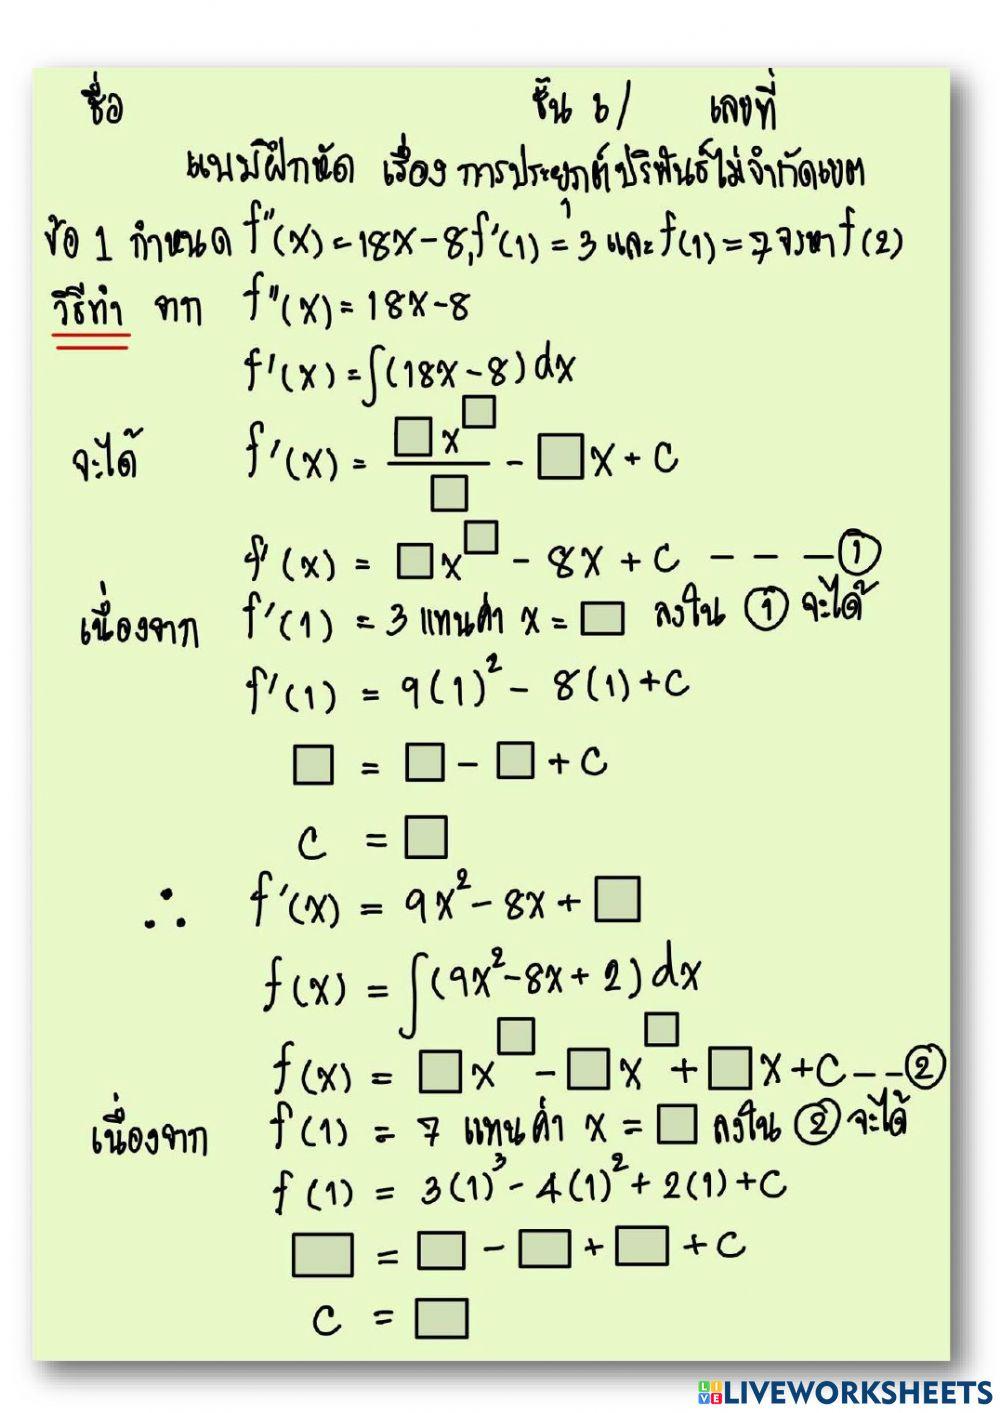 ชื่อ ชั้น 6/ เลขที่
แบบฝึกหัด เรื่อง การประยุกต์ปริพันธ์ไม่จำกัดเขต
ข้อ 1 กำหนด f''(x) = 18x - 8, f'(1) = 3 และ f(1) = 7 จงหา f(2)
วิธีทำ จาก f''(x) = 18x - 8
f'(x) = ∫(18x - 8) dx
จะได้ f'(x) = □x^□/□ - □x + c
f'(x) = □x^□ - 8x + c - - - ①
เนื่องจาก f'(1) = 3 แทนค่า x = □ ลงใน ① จะได้
f'(1) = 9(1)² - 8(1) + c
□ = □ - □ + c
c = □
∴ f'(x) = 9x² - 8x + □
f(x) = ∫(9x² - 8x + 2) dx
f(x) = □x^□ - □x^□ + □x + c - - ②
เนื่องจาก f(1) = 7 แทนค่า x = □ ลงใน ② จะได้
f(1) = 3(1)³ - 4(1)² + 2(1) + c
□ = □ - □ + □ + c
c = □
LIVE LIVEWORKSHEETS